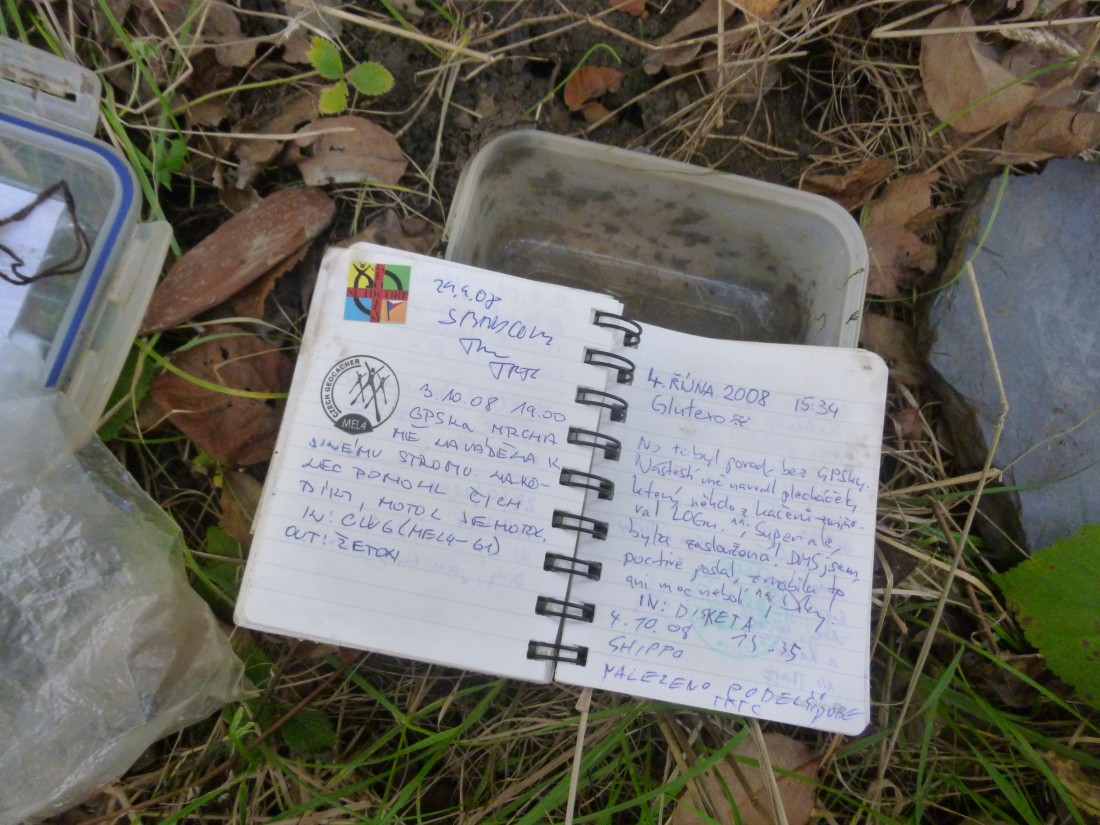 29.9.08
TFTC
CZECH GEOCACHER
MEL4
3.10.08 19.00
GPSKA MRCHA
MĚ NAVÁDĚLA K
JINÉMU STROMU. NAKO-
NEC POMOHL ČICH.
DÍKY, MOTOL JEMOTOL,
IN: CWG (MEL4-61)
OUT: ŽETON
4. ŘÍJNA 2008 15:34
Glutexo
No to byl porod bez GPSky.
Naštěstí mě navedl plecháček,
který někdo z kačerů
val LOGu. Super ale,
byla zasloužená! DMS jsem
poctivě poslal, z mobilu to
ani moc nebolí Díky.
IN: DISKETA
4.10.08 15:35
GHIPPO
NALEZENO PO DELŠÍ
DOBĚ
TFTC